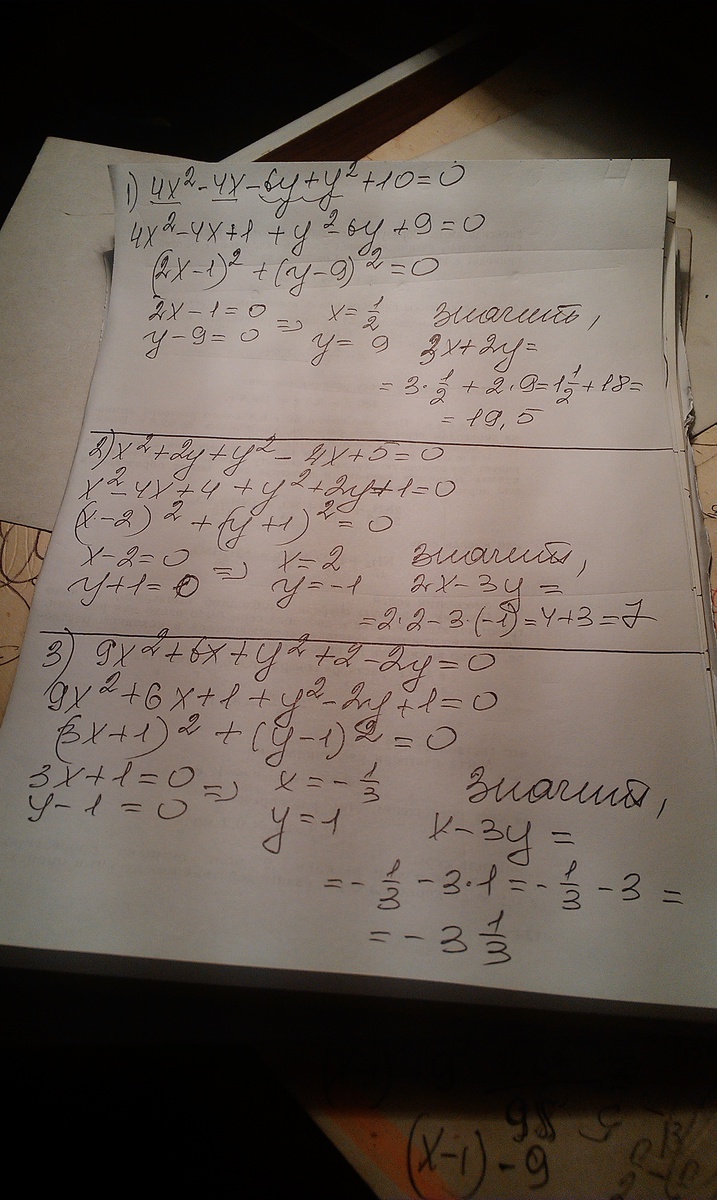 1) 4x² - 4x - 6y + y² + 10 = 0
4x² - 4x + 1 + y² - 6y + 9 = 0
(2x - 1)² + (y - 9)² = 0
2x - 1 = 0 => x = 1/2 Значит,
y - 9 = 0 y = 9 3x + 2y =
= 3 · 1/2 + 2 · 9 = 1 1/2 + 18 =
= 19,5
2) x² + 2y + y² - 4x + 5 = 0
x² - 4x + 4 + y² + 2y + 1 = 0
(x - 2)² + (y + 1)² = 0
x - 2 = 0 => x = 2 Значит,
y + 1 = 0 y = -1 2x - 3y =
= 2 · 2 - 3 · (-1) = 4 + 3 = 7
3) 9x² + 6x + y² + 2 - 2y = 0
9x² + 6x + 1 + y² - 2y + 1 = 0
(3x + 1)² + (y - 1)² = 0
3x + 1 = 0 => x = - 1/3 Значит,
y - 1 = 0 y = 1 x - 3y =
= - 1/3 - 3 · 1 = - 1/3 - 3 =
= - 3 1/3
(x-1) - 9